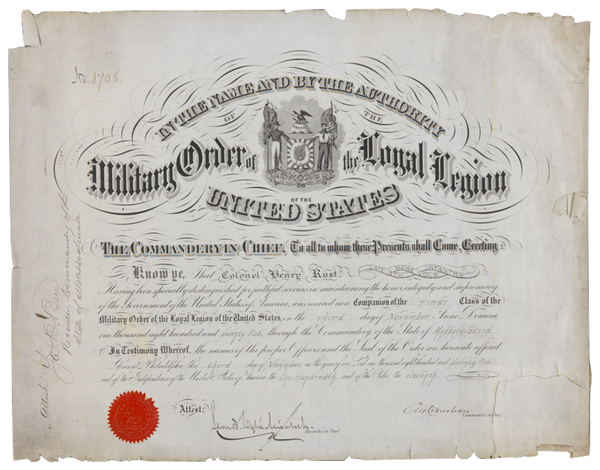 No. 1708
IN THE NAME AND BY THE AUTHORITY
OF THE
Military Order of the Loyal Legion
OF THE
UNITED STATES
THE COMMANDERY IN CHIEF, To all to whom these Presents shall Come, Greeting:
Know ye, That Colonel Henry Rust
Having been specially distinguished for faithful services in maintaining the honor, integrity and supremacy
of the Government of the United States of America, was received as a Companion of the First Class of the
Military Order of the Loyal Legion of the United States, on the third day of November Anno Domini,
one thousand eight hundred and through the Commandery of the State of Massachusetts
In Testimony Whereof, the names of the proper Officers and the Seal of the Order are hereunto affixed
Philadelphia this third day of November, in the year of our Lord one thousand eight hundred and
and of the Independence of the United States of America the one hundredth, and of the Order the eleventh.
Attest:
Recorder in Chief
Commander in Chief
Attest:
Recorder Commandery of the
State of Massachusetts